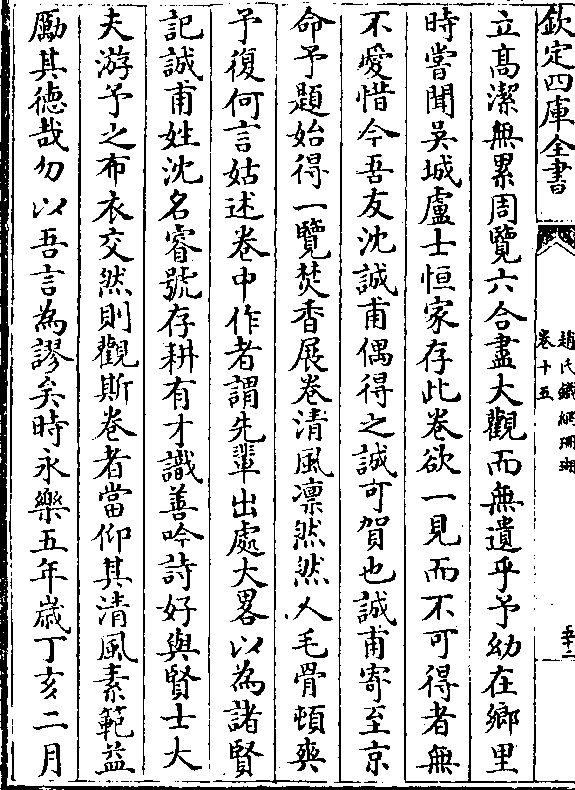 欽定四庫全書
趙氏鐵網珊瑚
卷十五
立高潔無累周覽六合盡大觀而無遺乎予幼在鄉里
時嘗聞吳城盧士恒家存此卷欲一見而不可得者無
不愛惜今吾友沈誠甫偶得之誠可賀也誠甫寄至京
命予題始得一覽焚香展卷清風凛然然人毛骨頓爽
予復何言姑述卷中作者謂先輩出處大畧以為諸賢
記誠甫姓沈名睿號存耕有才識善吟詩好與賢士大
夫游予之布衣交然則觀斯卷者當仰其清風素範益
勵其德哉勿以吾言為謬矣時永樂五年歲丁亥二月